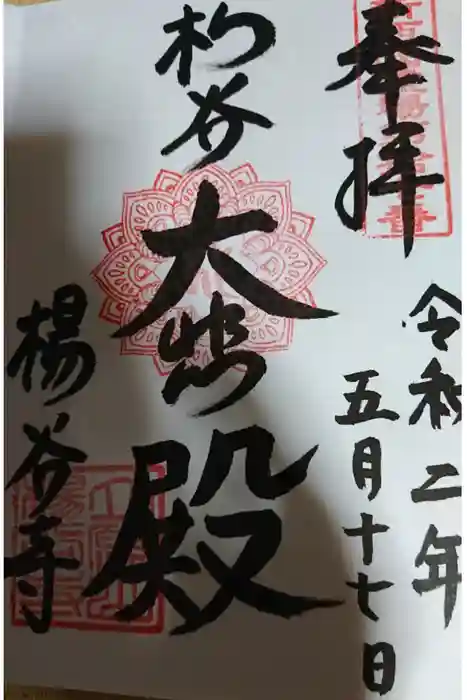 奉拝
令和二年
五月十七日
杓谷
大悲殿
楊谷寺